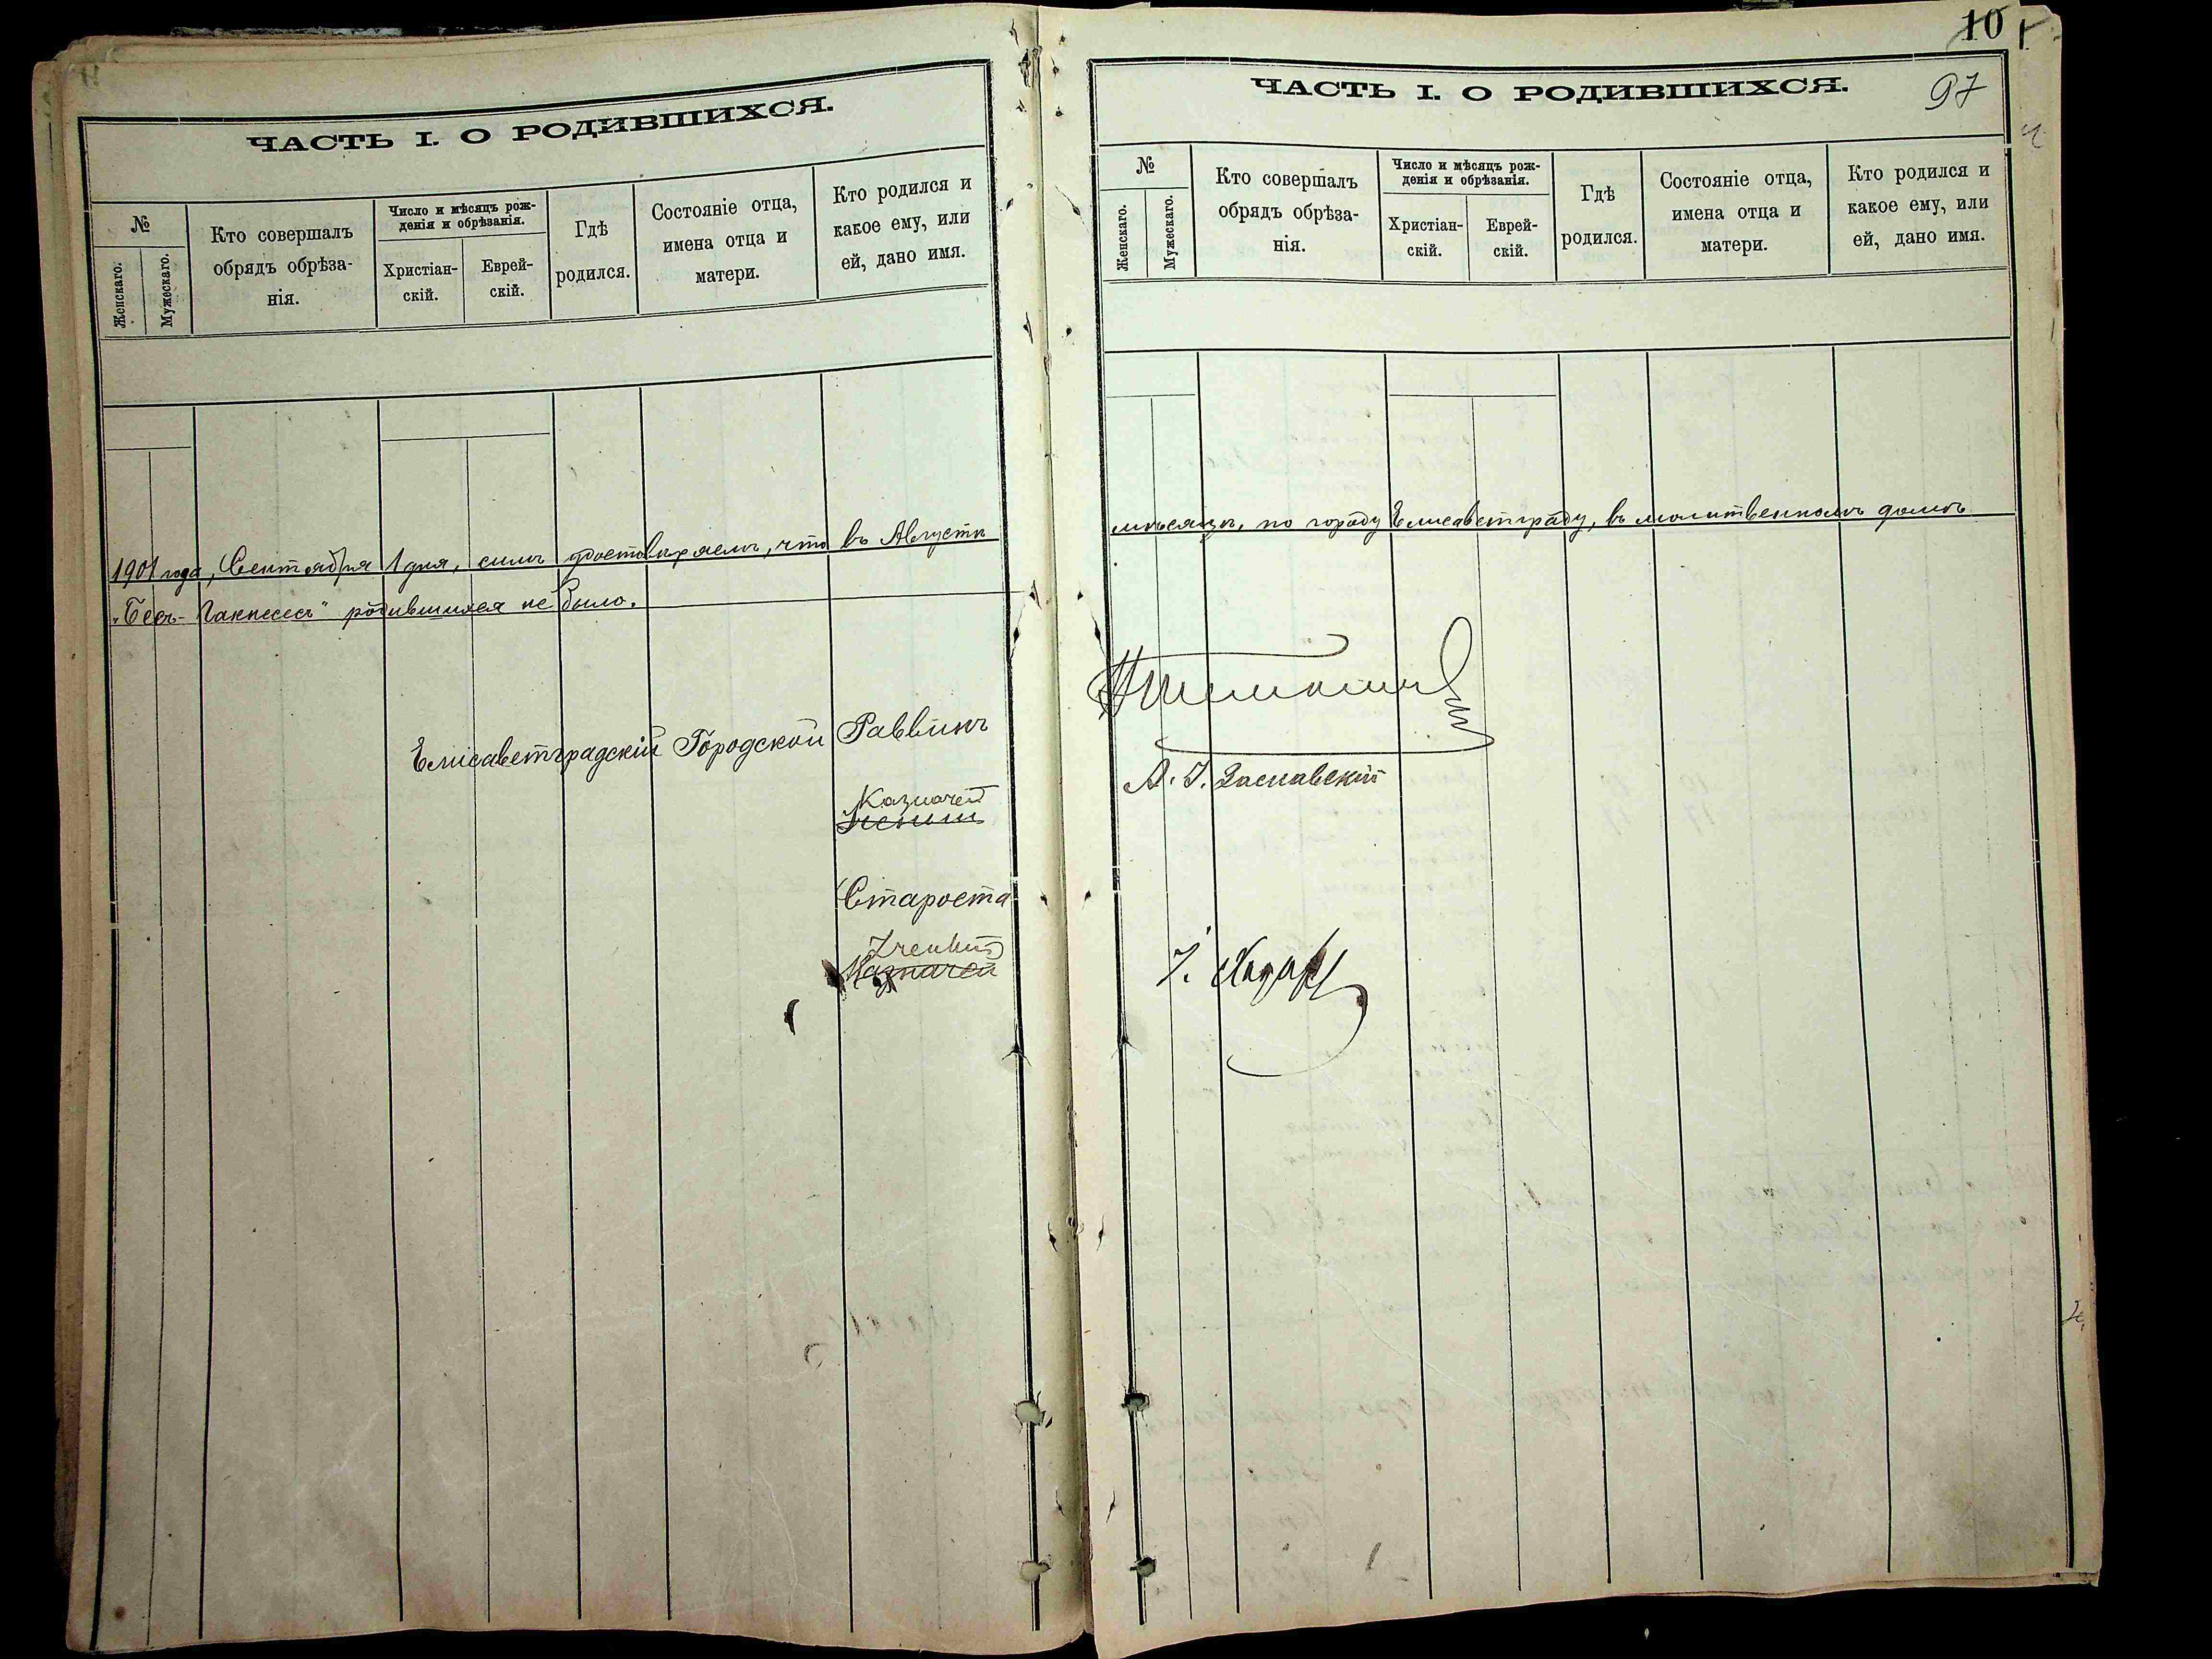 ЧАСТЬ I. О РОДИВШИХСЯ.
№
Женскаго.
Мужескаго.
Кто совершалъ
обрядъ обрѣза-
нія.
Число и мѣсяцъ рож-
денія и обрѣзанія.
Христіан-
скій.
Еврей-
скій.
Гдѣ
родился.
Состояніе отца,
имена отца и
матери.
Кто родился и
какое ему, или
ей, дано имя.
1901 года, Сентября 1 дня, симъ удостовѣряемъ, что въ Августѣ
"Бесъ-Гакнесесъ" родившихся не было.
Елисаветградскій Городской Раввинъ
Казначей
Ученый
Староста
Ученый
Казначей
10
97
ЧАСТЬ I. О РОДИВШИХСЯ.
№
Женскаго.
Мужескаго.
Кто совершалъ
обрядъ обрѣза-
нія.
Число и мѣсяцъ рож-
денія и обрѣзанія.
Христіан-
скій.
Еврей-
скій.
Гдѣ
родился.
Состояніе отца,
имена отца и
матери.
Кто родился и
какое ему, или
ей, дано имя.
мѣсяцѣ, по городу Елисаветграду, въ молитвенномъ домѣ
Заславскій